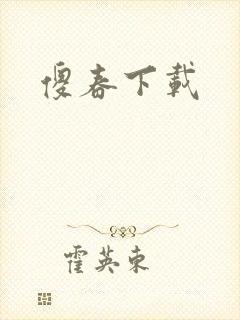 傻春下載
霍英東